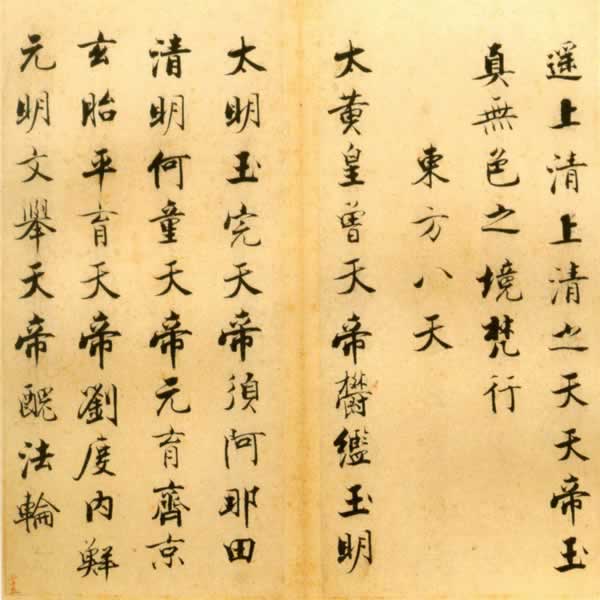 遥上清上清之天天帝玉
真無色之境梵行
東方八天
太黄皇曾天帝欝繿玉明
太明玉完天帝須阿那田
清明何童天帝元育齊京
玄胎平育天帝劉度内鮮
元明文舉天帝醜法輪